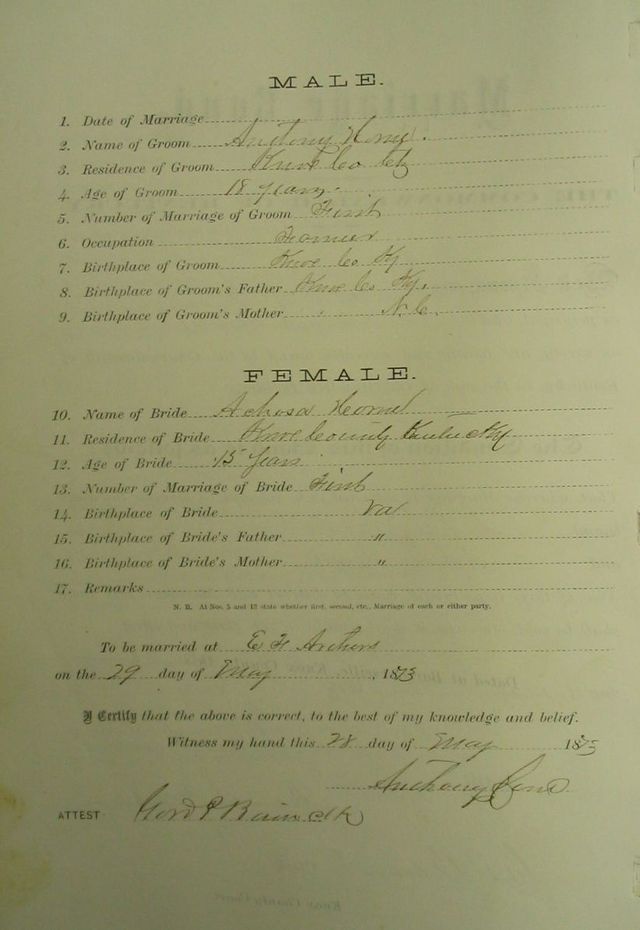 MALE.
1. Date of Marriage
2. Name of Groom Anthony
3. Residence of Groom Knox Co Ky
4. Age of Groom 18 years
5. Number of Marriage of Groom First
6. Occupation Farmer
7. Birthplace of Groom Knox Co Ky
8. Birthplace of Groom's Father Knox Co Ky.
9. Birthplace of Groom's Mother N. C.
FEMALE.
10. Name of Bride
11. Residence of Bride Knox County Kentucky
12. Age of Bride 15 years
13. Number of Marriage of Bride First
14. Birthplace of Bride Va
15. Birthplace of Bride's Father "
16. Birthplace of Bride's Mother "
17. Remarks
N. B. At Nos. 5 and 13 state whether first, second, etc., Marriage of each or either party.
To be married at E F Archers
on the 29 day of May, 1873
I Certify that the above is correct, to the best of my knowledge and belief.
Witness my hand this 28 day of May 1873
Anthony
ATTEST